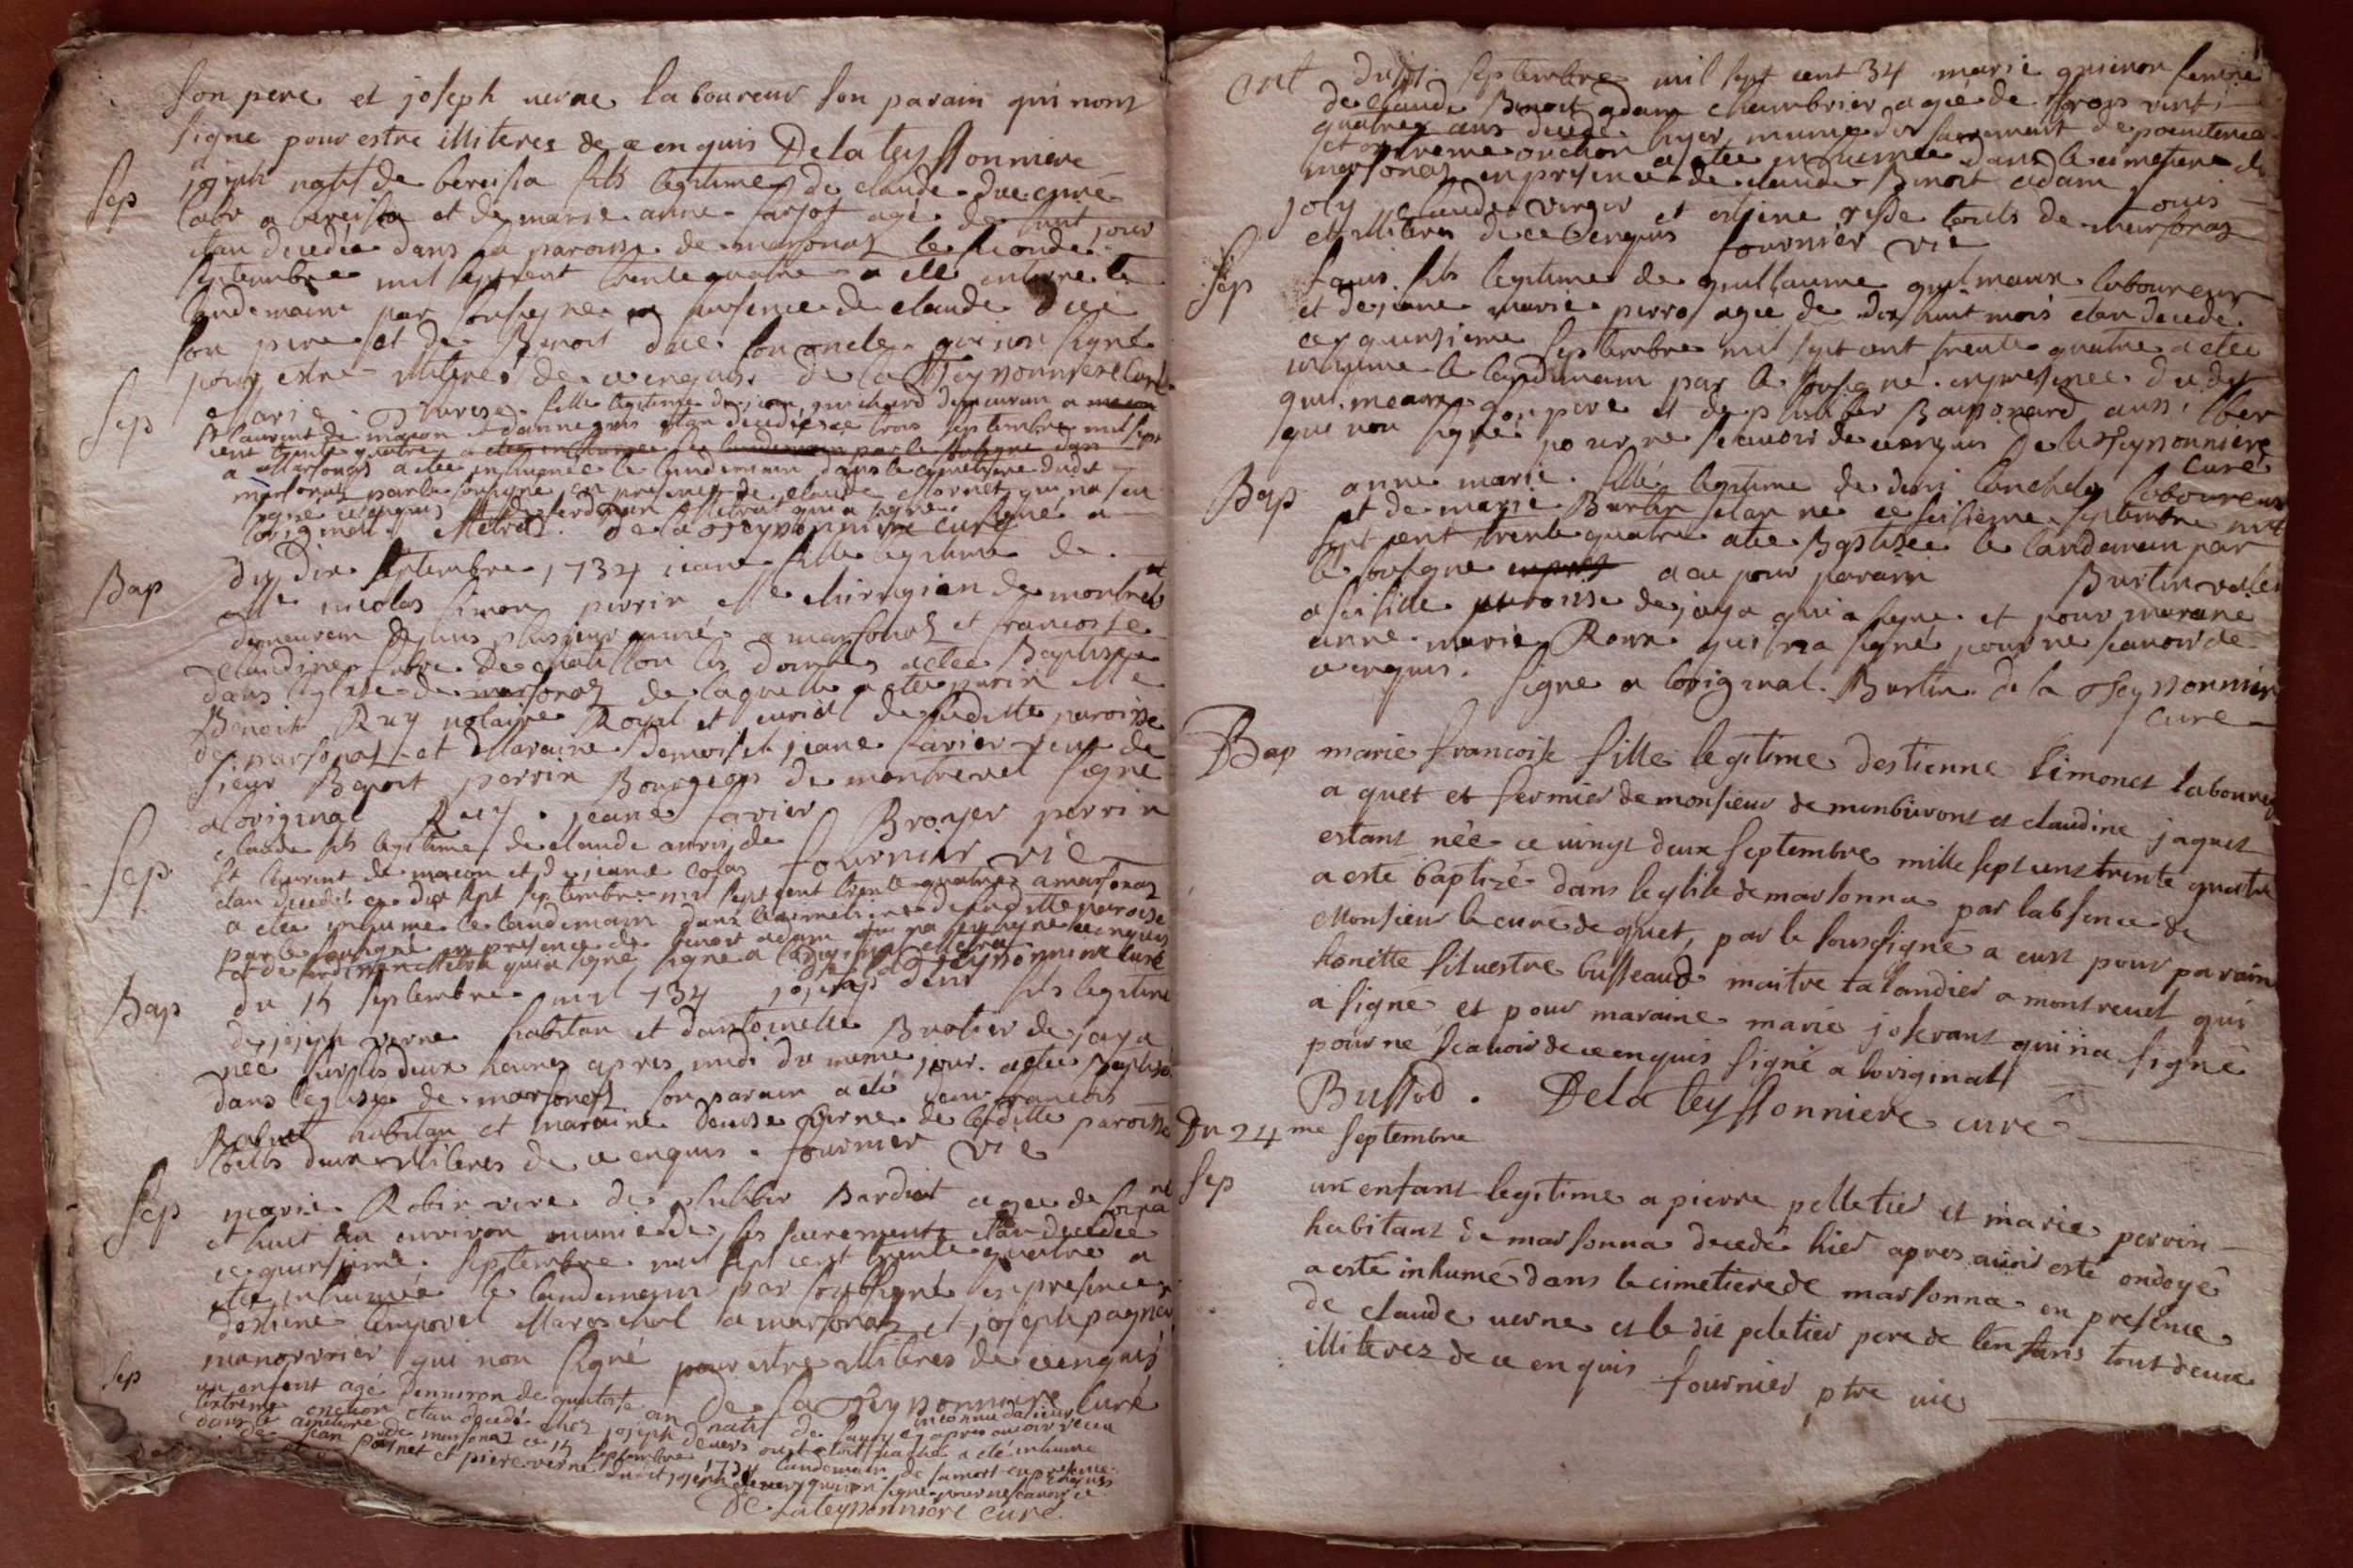 son pere et joseph verne laboureur son parain qui nont
signe pour estre illiteres de ce enquis De la teyssonniere
Sep joseph natif de bereisia fils legitime de claude duc
labr a bereisia et de marie anne farjot agé de huit jour
etan decedée dans la paroisse de marsonas le seconde
septembre mil sept cent trente quatre a été
landemain par sousigne en presence de claude duc
son pere et de Benoit duc son oncle qui non signé
pour estre illiteres de ce enquis De la Teyssonniere curé
Sep Marie fille legitime de jean guichard demeuran a
St laurent de macon etan decedée ce trois septembre mil sept
cent trente quatre a eté inhumée le landemain par le sousigné dans
a Marsonas a etée inhumée le landemain dans le cymetiere dudit
marsonas par le sousigne en presence de claude Mornet qui na
signé a
loriginal Metra De la Teyssonniere curé
Bap du dix septembre 1734 jeane fille legitime de
Me nicolas simon perrin Me chirugien de montrevel
demeuran depuis plusieur anné a marsonas et francoise
claudine fabre de chatillon les dombes a etée Baptisée
dans leglise de marsonas de laquelle a etée parin Me
Benoit Ruy notaire Royal et curial de ladite paroisse
de marsonas et Maraine demoiselle jeane favier veuve de
sieur Benoit perrin Bourgeois de montrevel signé
a loriginal Ruy . jeane favier Broyer perrin
fournier vic
Sep claude fils legitime de claude
St laurent de macon et de jeane colas
etan decedé ce dix sept septembre mil sept cent trente quatre a marsonas
a etée inhumé le landemain dans le cimetiere de ladite paroisse
par le sousigné en presence de benoit adam qui na signé de ce enquis
et de ferdinan Metra qui a signé signé a loriginal Metra
De la Teyssonniere curé
Bap du 15 septembre mil 734 joseph denis fils legitime
de joseph verne habitan et dantoinette Brotier de jaya
née sur les deux heures apres midi du meme jour a etée Baptisé
dans leglise de marsonas son parain a été jean francois
Robert habitan et maraine denise verne de ladite paroisse
touts deux illiteres de ce enquis . fournier vic
Sep marie Robin vive de philiber Bardet agee de soixante
et huit an environ munie de ses sacrements etan decedée
ce quinsieme septembre mil sept cent trente quatre a
etée inhumée le landemain par soubsigné en presence
destiene temporel Mareschal a marsonas et joseph pagnex
manouvrier qui non signé pour estre illiteres de ce enquis
De la Teyssonniere curé
Sep un enfant agé denviron de quatorse an natif de savoye inconnu dailleur apres avoir receu
lextreme onction etan decedé chez joseph devers a été inhumé
dans le cimetiere de marsonas ce 15 septembre 1734 landemain de sa mort en presence
de jean poisnet et piere verne dudit joseph devers qui non signé pour ne scavoir de ce enquis
De Lateyssonniere curé
ent Du septembre mil sept cent 34 marie guienon femme
de claude Benoit adam chambrier agée de trois vint
quatre ans decedée hyer, munie des sacrement de poenitence
et extreme onction a etée inhumée dans le cimetiere de
marsonas en presence de claude Benoit adam louis
joly claude verger et etiene tests touts de marsonas
et illiteres de ce enquis fournier vic
Sep fils legitime de guillaume guilmaux laboureur
et de jeane marie perras agée de dix huit mois etan decedé
ce quinsieme septembre mil sept cent trente quatre a etée
inhumé le landemain par le sousigné en presence dudit
guilmeaux son pere et de philiber Baissonard aussi laber
qui non signé pour ne scavoir de ce enquis De la Teyssonniere
curé
Bap anne marie fille legitime de deni lanchely laboureur
et de marie Burtin etan née ce seisieme septembre mil
sept cent trente quatre a etée Baptisée le landemain par
le sousigne a eu pour parain Burtin valet
paroisse de jaya qui a signé et pour marene
anne marie Roux qui na signé pour ne scavoir de
ce enquis. signe a loriginal. Burtin De la Teyssonnier
curé
Bap marie francoise fille legitime destienne simonet laboureur
a quet et fermier de monsieur de monbivont et claudine jaquet
estant née ce vingt deux septembre mille sept cens trente quatre
a esté baptizé dans leglise de marsonna par labsence de
Monsieur le curé de quet, par le soussigné a eust pour parain
honette siluestre busseaud maitre talandier a montreuel qui
a signé et pour maraine marie joserant qui na signé
pour ne scauoir de ce enquis signé a loriginal
Bussod . De la teyssonniere curé
Du 24me septembre
Sep un enfant legitime a pierre pelletier et marie perrin
habitant de marsonna decedé hier apres auoir esté ondoyé
a esté inhumé dans le cimetiere de marsonna en presence
de claude uerne et le dit peletier pere de lenfans tout deux
illiterez de ce enquis fournier ptre uic